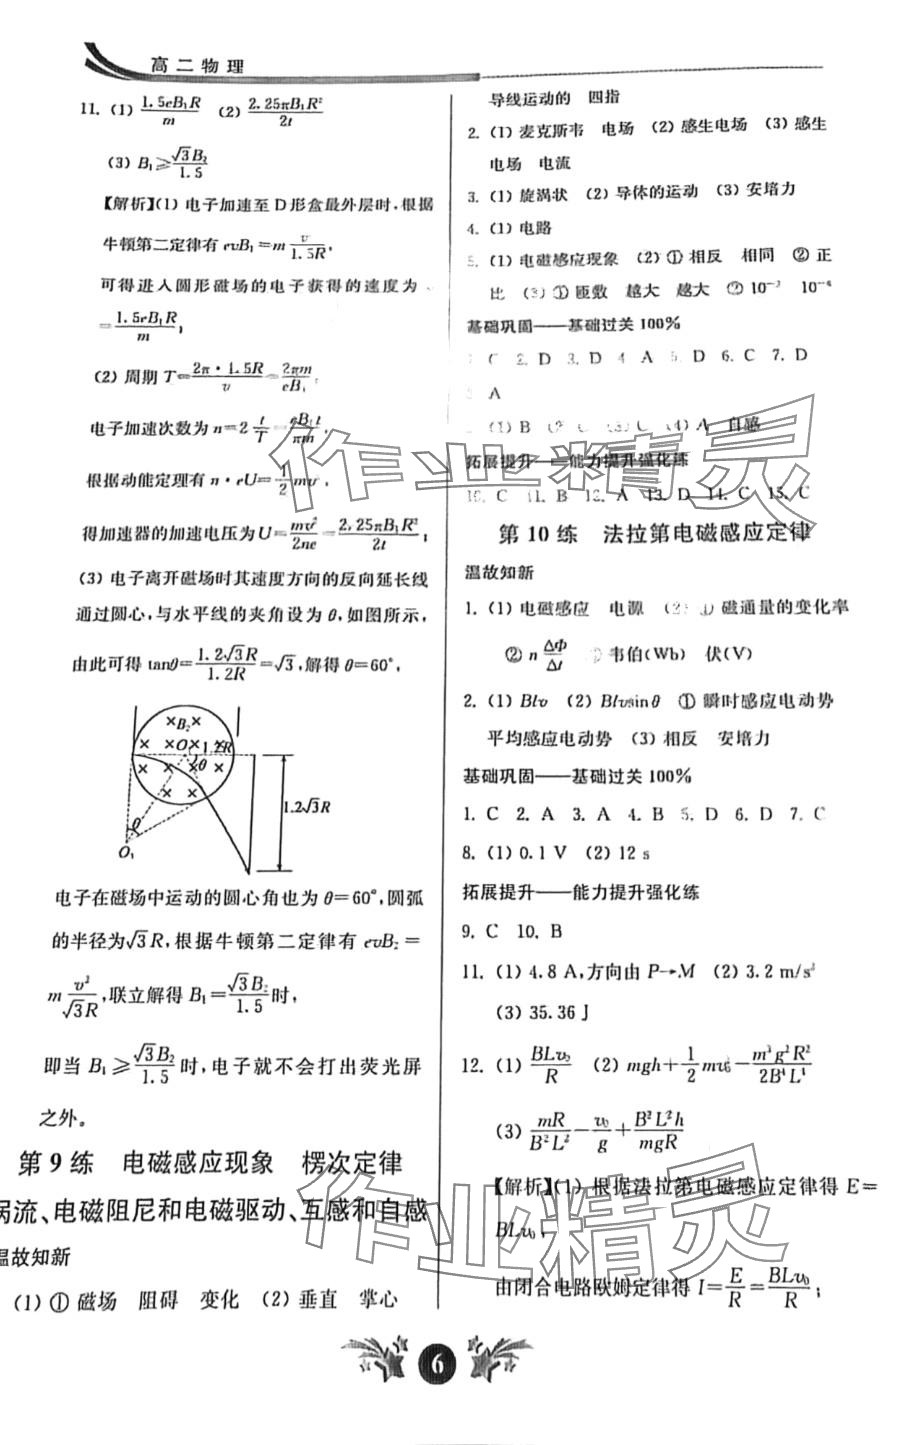 高二物理
11. (1) 1.5eB₁R/m (2) 2.25πB₁R²/2t
(3) B₁≥√3B₂/1.5
【解析】(1) 电子加速至 D 形盒最外层时,根据
牛顿第二定律有 evB₁=m v/1.5R,
可得进入圆形磁场的电子获得的速度为 v
=1.5eB₁R/m;
(2) 周期 T=2π·1.5R/v=2πm/eB₁,
电子加速次数为 n=2 t/T=eB₁t/πm,
根据动能定理有 n·eU=1/2 mv²,
得加速器的加速电压为 U=mv²/2ne=2.25πB₁R²/2t;
(3) 电子离开磁场时其速度方向的反向延长线
通过圆心,与水平线的夹角设为 θ,如图所示,
由此可得 tanθ=1.2√3R/1.2R=√3,解得 θ=60°,
B₂
O 1.2R
θ
1.2√3R
θ
O₁
电子在磁场中运动的圆心角也为 θ=60°,圆弧
的半径为√3R,根据牛顿第二定律有 evB₂=
m v²/√3R,联立解得 B₁=√3B₂/1.5时,
即当 B₁≥√3B₂/1.5时,电子就不会打出荧光屏
之外。
第 9 练 电磁感应现象 楞次定律
涡流、电磁阻尼和电磁驱动、互感和自感
温故知新
(1) ① 磁场 阻碍 变化 (2) 垂直 掌心
导线运动的 四指
2. (1) 麦克斯韦 电场 (2) 感生电场 (3) 感生
电场 电流
3. (1) 旋涡状 (2) 导体的运动 (3) 安培力
4. (1) 电路
5. (1) 电磁感应现象 (2) ① 相反 相同 ② 正
比 (3) ① 匝数 越大 越大 ② 10⁻³ 10⁻⁶
基础巩固——基础过关 100%
C 2. D 3. D 4 A 5. D 6. C 7. D
A
(1) B (2) C (3) C (4) A 自感
拓展提升——能力提升强化练
10. C 11. B 12. A 13. D 14. C 15. C
第 10 练 法拉第电磁感应定律
温故知新
1. (1) 电磁感应 电源 (2) ① 磁通量的变化率
② n ΔΦ/Δt 韦伯(Wb) 伏(V)
2. (1) Blv (2) Blvsinθ ① 瞬时感应电动势
平均感应电动势 (3) 相反 安培力
基础巩固——基础过关 100%
1. C 2. A 3. A 4. B 5. D 6. D 7. C
8. (1) 0.1 V (2) 12 s
拓展提升——能力提升强化练
9. C 10. B
11. (1) 4.8 A,方向由 P→M (2) 3.2 m/s²
(3) 35.36 J
12. (1) BLv₀/R (2) mgh+1/2 mv₀²−m³g²R²/2B⁴L⁴
(3) mR/B²L²−v₀/g+B²L²h/mgR
【解析】(1) 根据法拉第电磁感应定律得 E=
BLv₀,
由闭合电路欧姆定律得 I=E/R=BLv₀/R;
6
作业精灵
作业精灵